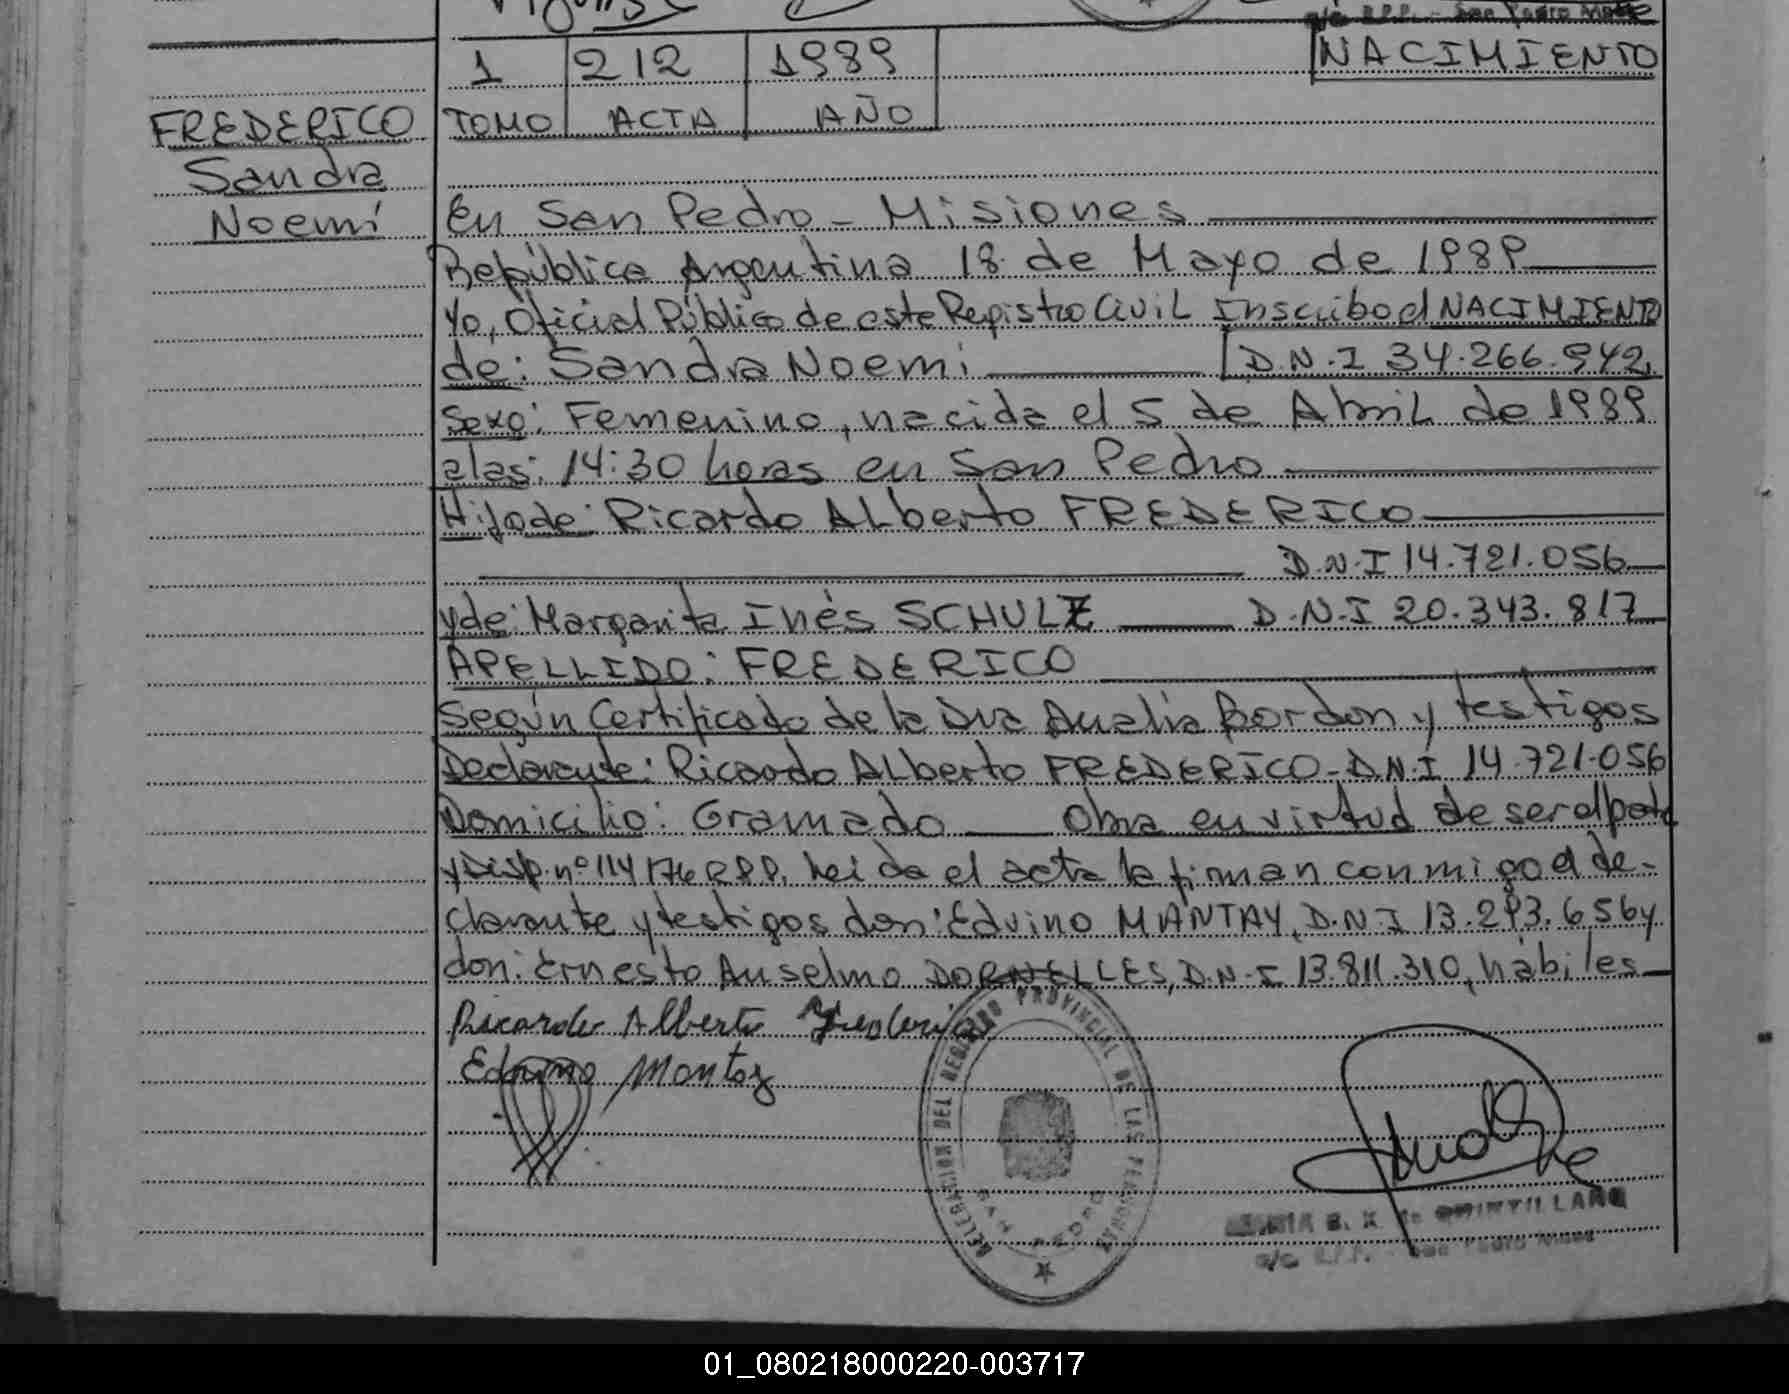 a/c R.P.P. - San Pedro Mnes
1 212 1989 NACIMIENTO
FREDERICO TOMO ACTA AÑO
Sandra
Noemí En San Pedro - Misiones
República Argentina 18 de Mayo de 1989
Yo, Oficial Público de este Registro Civil Inscribo el NACIMIENTO
de: Sandra Noemi D.N.I 34.266.942
Sexo: Femenino, nacida el 5 de Abril de 1989
a las: 14:30 horas en San Pedro
Hijo de: Ricardo Alberto FREDERICO
D.N.I 14.721.056
y de: Margarita Inés SCHULZ D.N.I 20.343.817
APELLIDO: FREDERICO
Según Certificado de la Dra Analia Bordon y testigos
Declarante: Ricardo Alberto FREDERICO - D.N.I 14.721.056
Domicilio: Gramado Obra en virtud de ser el padre
y Disp. nº 114/76 RPP. Leida el acta la firman conmigo el de-
clarante y testigos don: Edvino MANTAY, D.N.I 13.293.656 y
don: Ernesto Anselmo DORNELLES, D.N.I 13.811.310, hábiles
Ricardo Alberto Frederico
Edvino Montoy
DELEGACION DEL REGISTRO PROVINCIAL DE LAS PERSONAS
SAN PEDRO
B. X. de QUINTILLAN
a/c R.P.P. - San Pedro Mnes
01_080218000220-003717